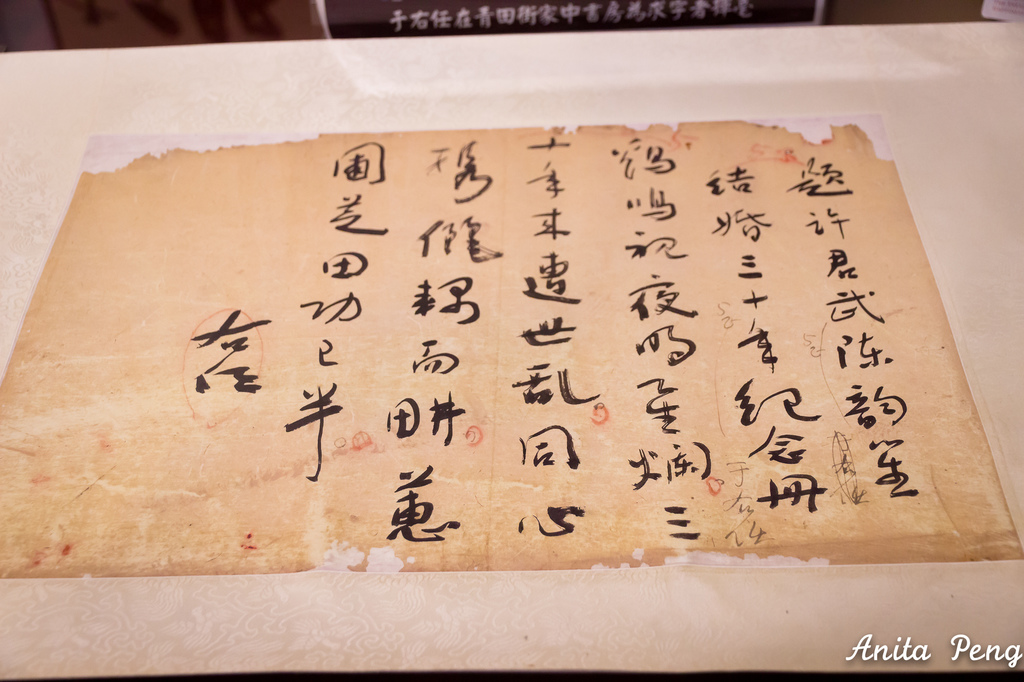 于右任在青田街家中書房為求字者揮毫
題許君武陳韵
結婚三十年紀念冊
于右任
鷄鳴視夜明星爛三
十年来遭世乱同心
携儷耦而畊蕙
圃芝田功已半
右任
Anita Peng